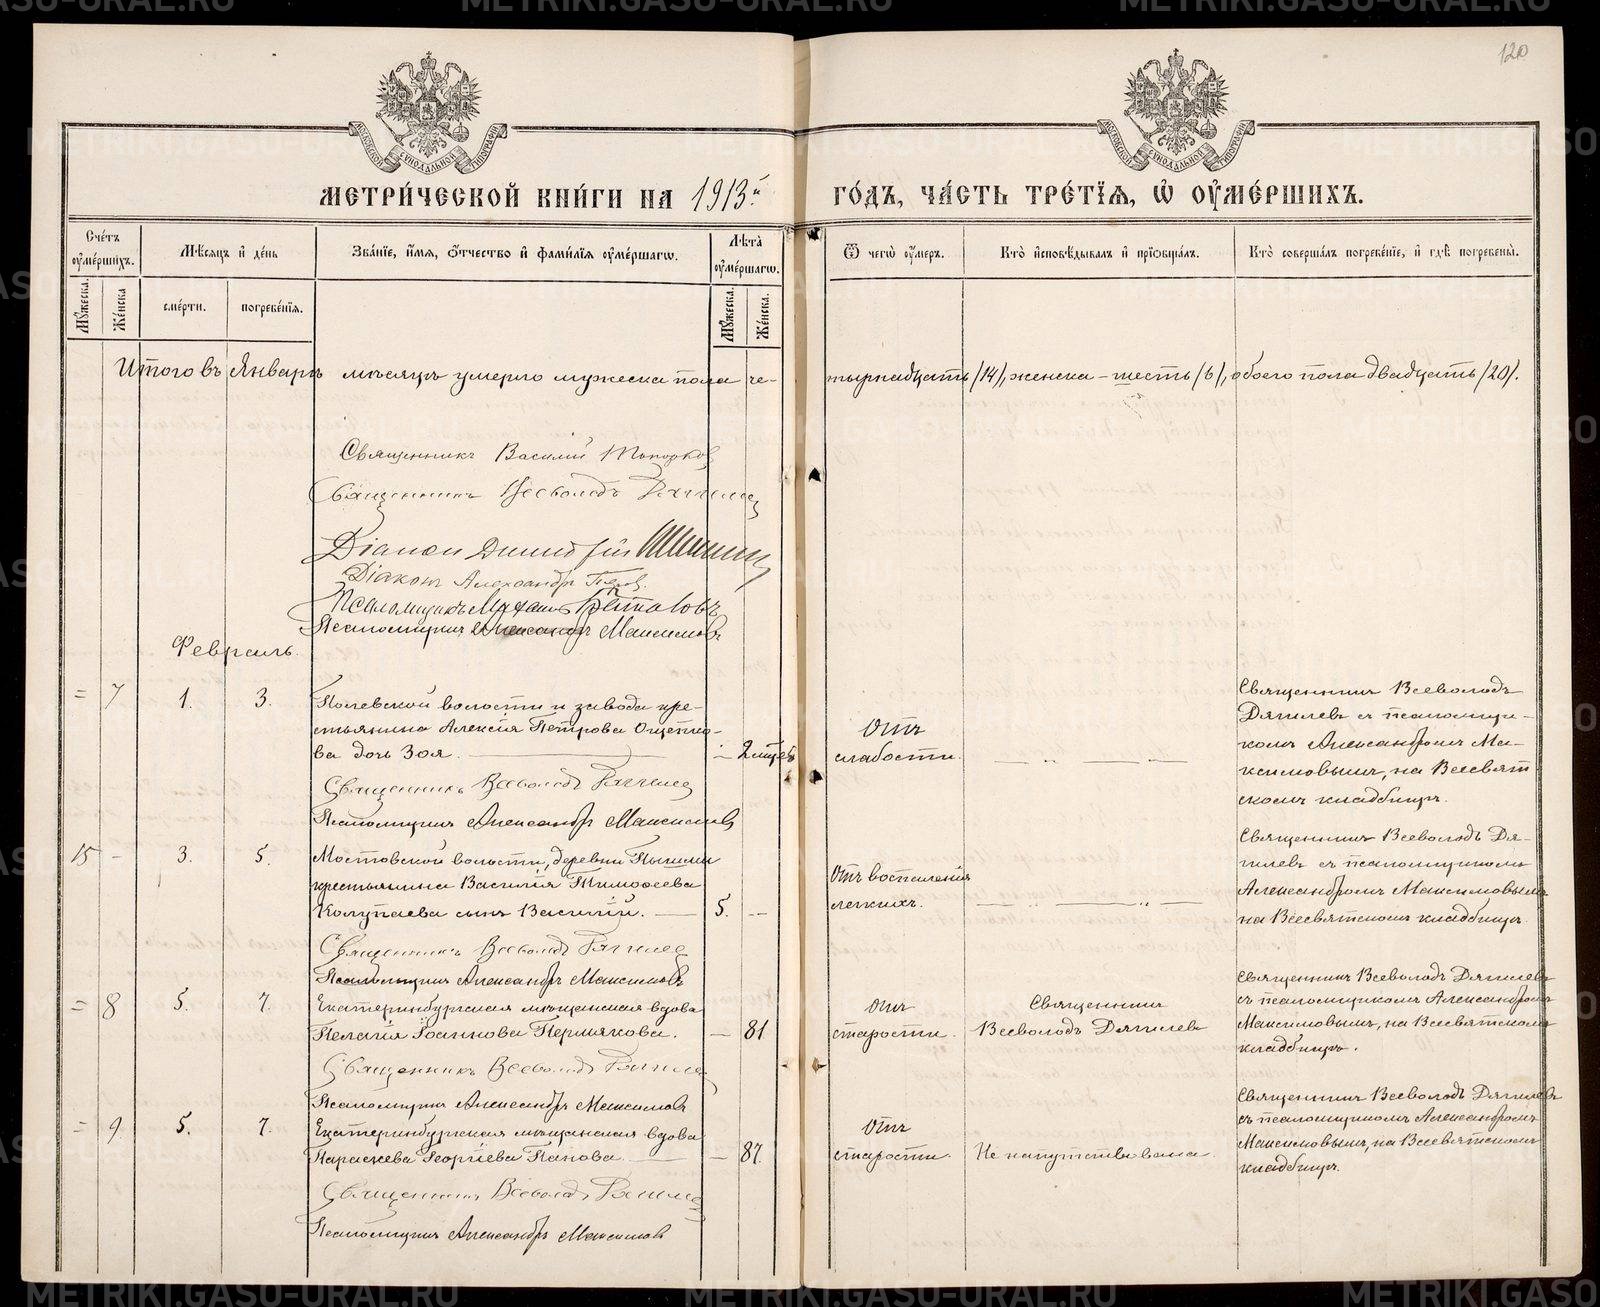 120
МОСКОВСКОЙ СѴНОДАЛЬНОЙ ТИПОГРАФІИ
МОСКОВСКОЙ СѴНОДАЛЬНОЙ ТИПОГРАФІИ
МЕТРИ́ЧЕСКОЙ КНИ́ГИ НА 1913й ГО́ДЪ, ЧА́СТЬ ТРЕ́ТІЯ, Ѡ҆ ОУ҆МЕ́РШИХЪ.
Сче́тъ оу҆ме́ршихъ.
Мѣ́сяцъ и҆ де́нь
Зва́ніе, и҆́мя, ѻ҆́тчество и҆ фами́лія оу҆ме́ршагѡ.
Лѣ́та оу҆ме́ршагѡ.
Ѿ чегѡ̀ оу҆́меръ.
Кто̀ и҆сповѣ́дывалъ и҆ прїѻбща́лъ.
Кто̀ соверша́лъ погребе́ніе, и҆ гдѣ̀ погребены̀.
Му́жеска.
Же́нска
сме́рти.
погребе́нія.
Му́жеска.
Же́нска.
Итого въ Январѣ мѣсяцѣ умерло мужеска пола че-
тырнадцать /14/, женска – шесть /6/, обоего пола двадцать /20/.
Священникъ Василій Топорковъ
Священникъ Всеволодъ Дягилев
Діакон
Діаконъ Александръ
Псаломщикъ
Псаломщикъ Александръ Максимовъ
Февраль.
= 7 1. 3.
Полевской волости и завода кре-
стьянина Алексія Петрова Ощепко-
ва дочь Зоя. — 2 мѣс.
Отъ
слабости.
Священникъ Всеволодъ
Дягилевъ съ псаломщи-
комъ Александромъ Ма-
ксимовымъ, на Всесвят
скомъ кладбищѣ.
Священникъ Всеволодъ Дягилев
Псаломщикъ Александръ Максимовъ
15 - 3. 5.
Мостовской волости, деревни Пышмы
крестьянина Василія Тимофеева
Колупаева сынъ Василій. — 5. --
Отъ воспаленія
легкихъ.
Священникъ Всеволодъ Дя-
гилевъ съ псаломщикомъ
Александромъ Максимовымъ
на Всесвятскомъ кладбищѣ.
Священникъ Всеволодъ Дягилев
Псаломщикъ Александръ Максимовъ
= 8 5. 7.
Екатеринбургская мѣщанская вдова
Пелагія Іоаннова Пермякова. — 81
Отъ
старости.
Священникъ
Всеволодъ Дягилевъ
Священникъ Всеволодъ Дягилевъ
съ псаломщикомъ Александромъ
Максимовымъ, на Всесвятскомъ
кладбищѣ.
Священникъ Всеволодъ Дягилев
Псаломщикъ Александръ Максимовъ
= 9 5. 7.
Екатеринбургская мѣщанская вдова
Параскева Георгіева Панова. — 87.
Отъ
старости.
Не напутствована.
Священникъ Всеволодъ Дягилевъ
съ псаломщикомъ Александромъ
Максимовымъ, на Всесвятскомъ
кладбищѣ.
Священникъ Всеволодъ Дягилев
Псаломщикъ Александръ Максимовъ
METRIKI.GASO-URAL.RU